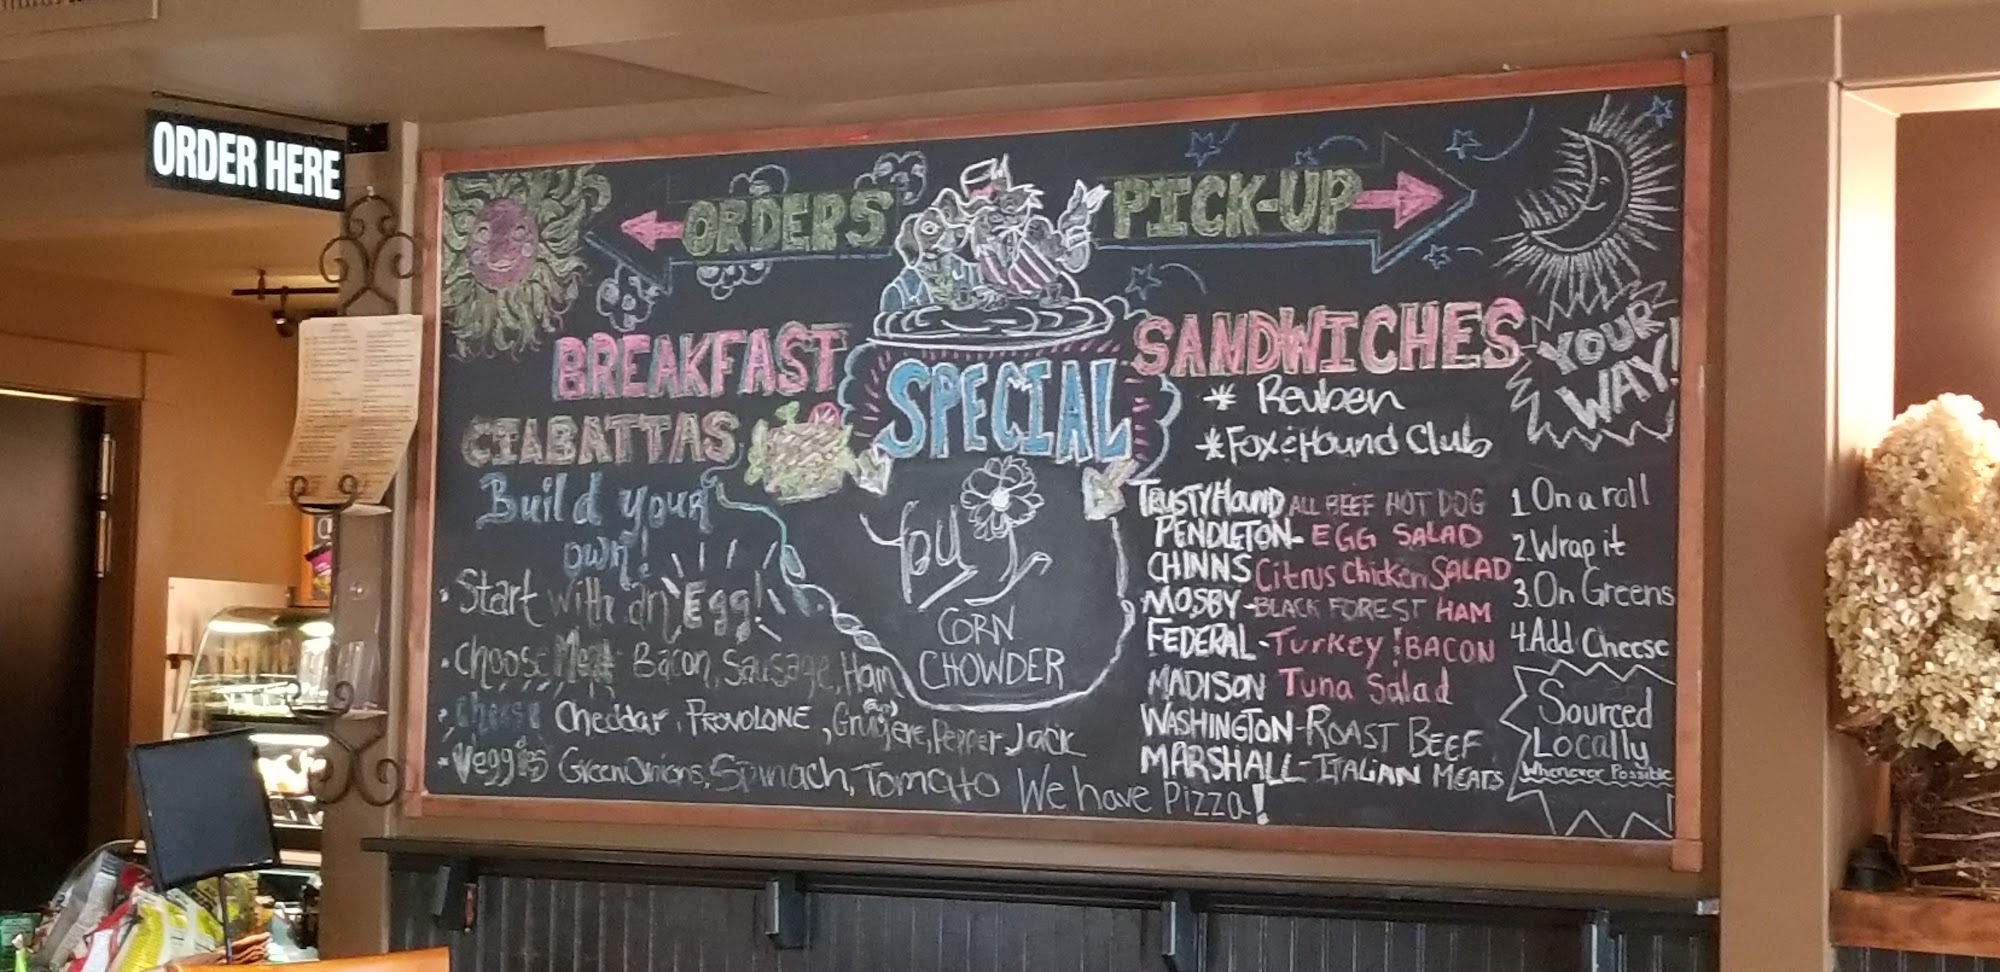 ORDER HERE
ORDERS
PICK-UP
BREAKFAST
CIABATTAS
Build your
own!
• Start with an Egg!
• Choose Meat Bacon, Sausage, Ham
• Cheese Cheddar, PROVOLONE, Gruyere, Pepper Jack
• Veggies Green Onions, Spinach, Tomato
We have Pizza!
SPECIAL
You
CORN
CHOWDER
SANDWICHES
YOUR
WAY!
* Reuben
* Fox & Hound Club
TRUSTY HOUND ALL BEEF HOT DOG
PENDLETON- EGG SALAD
CHINNS Citrus Chicken SALAD
MOSBY-BLACK FOREST HAM
FEDERAL-Turkey & BACON
MADISON Tuna Salad
WASHINGTON-ROAST BEEF
MARSHALL-ITALIAN MEATS
1. On a roll
2. Wrap it
3. On Greens
4. Add Cheese
Sourced
Locally
Whenever Possible